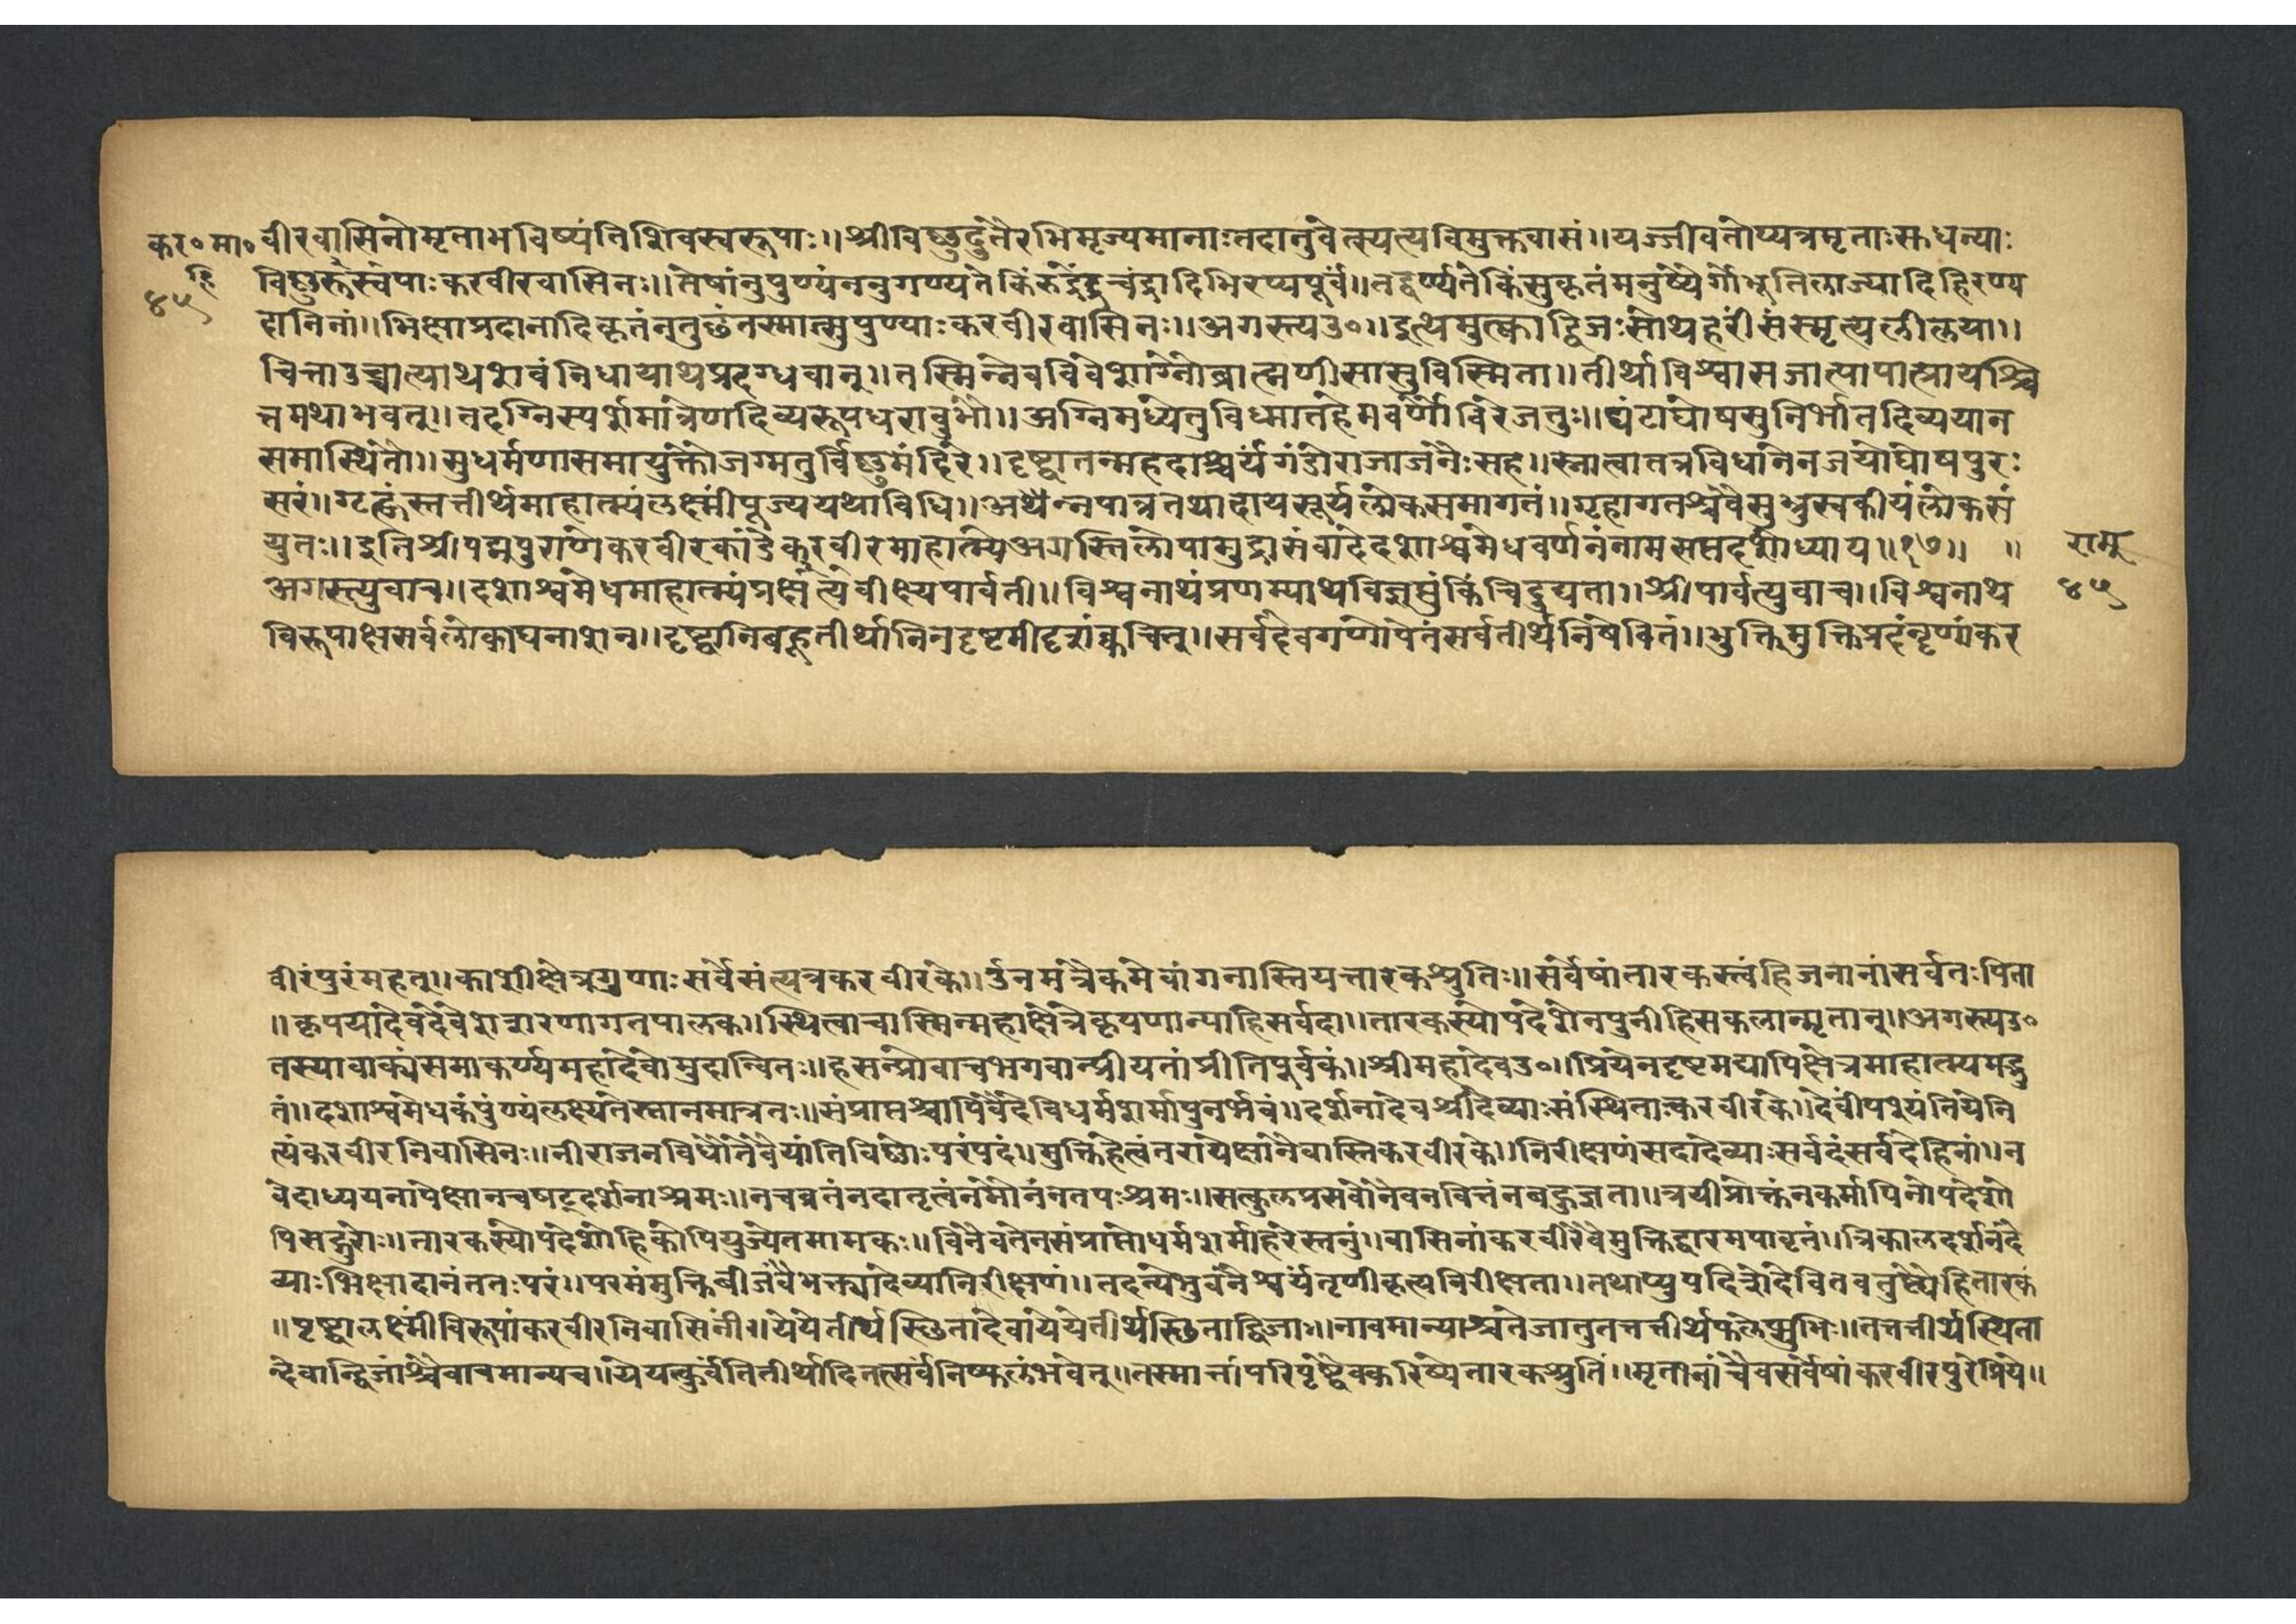 कर०मा०वीरवासिनोमृताभविष्यंतिशिवस्वरूपाः॥श्रीविष्णुदूतैरभिमृज्यमानाःतदातुवेत्स्यत्यविमुक्तवासं॥यज्जीवंतोप्यत्रमृताःस्तधन्याः
हि विष्णुरूस्वपाःकरवीरवासिनः॥तेषांनुपुण्यंननुगण्यतेकिंरुद्रेंद्रचंद्रादिभिरप्यपूर्वं॥तद्वर्ण्यतेकिंसुकृतंमनुष्येर्गोभूतिलाज्यादिहिरण्य
४५ दानिनां॥भिक्षाप्रदानादिकृतंनतुछंतस्मात्सुपुण्याःकरवीरवासिनः॥अगस्त्यउ०॥इत्थमुत्काद्विजःसोथहरींसंस्मृत्यलीलया॥
चित्ताउच्चात्याथशवंनिधायाथप्रदग्धवान्॥तस्मिन्नेवविवेशाग्नोब्राह्मणीसासुविस्मिता॥तीर्थाविश्वासजात्पापात्प्रायश्चि
त्तमथाभवत्॥तदग्निस्पर्शमात्रेणदिव्यरूपधरावुभौ॥अग्निमध्येतुविध्मातहेमवर्णौविरेजतुः॥घंटाघोषसुनिर्भातदिव्ययान
समास्थितौ॥सुधर्मणासमायुक्तौजग्मतुर्विष्णुमंदिरे॥दृष्ट्वातन्महदाश्चर्यंगंडोराजाजनैःसह॥स्नात्वातत्रविधानेनजयोघोषपुरः
सरं॥गृह्णंस्तत्तीर्थमाहात्म्यंलक्ष्मींपूज्ययथाविधि॥अथैन्नपात्रतथादायसूर्यलोकसमागतं॥गृहागतश्चवैसुभ्रुस्वकीयंलोकसं
युतः॥इतिश्रीपद्मपुराणेकरवीरकांडेकरवीरमाहात्म्येअगस्तिलोपामुद्रासंवादेदशाश्वमेधवर्णनंनामसप्तदशोध्याय॥१७॥ ॥ रामू
अगस्त्युवाच॥दशाश्वमेधमाहात्म्यंप्रर्क्षेत्यंवीक्ष्यपार्वती॥विश्वनाथंप्रणम्याथविज्ञप्तुंकिंचिदुद्यता॥श्रीपार्वत्युवाच॥विश्वनाथ ४५
विरूपाक्षसर्वलोकाघनाशन॥दृष्ट्वानिबहूतीर्थानिनदृष्टमीदृशंक्वचित्॥सर्वदेवगणोपेतंसर्वतीर्थनिषेवितं॥भुक्तिमुक्तिप्रदंनृणांकर
वीरंपुरंमहत्॥काशीक्षेत्रगुणाःसर्वेसंत्यत्रकरवीरके॥र्नुनमत्रैकमेवांगनास्तियत्तारकश्रुतिः॥सर्वेषांतारकस्त्वंहिजनानांसर्वतःपिता
॥कृपयादेवदेवेशशरणागतपालक॥स्थित्वाचास्मिन्महाक्षेत्रेकृपणान्पाहिसर्वदा॥तारकस्योपदेशेनपुनीहिसकलान्मृतान्॥अगस्त्यउ०
तस्यावाक्यंसमाकर्ण्यमहादेवोमुदान्वितः॥हसन्प्रोवाचभगवान्प्रीयतांप्रीतिपूर्वकं॥श्रीमहादेवउ०॥प्रियेनदृष्टमद्यापिक्षेत्रमाहात्म्यमद्भु
तं॥दशाश्वमेधकंपुंण्यंलक्ष्यतेस्नानमात्रतः॥संप्राप्तश्चापिवैदेविधर्मशर्मापुनर्भवं॥दर्शनादेवश्रीदेव्याःसंस्थिताःकरवीरके॥देवींपश्यंतियेनि
त्यंकरवीरनिवासिनः॥नीराजनविधौतेवैयांतिविष्णोःपरंपदं॥मुक्तिहेत्वंतरापेक्षानेवास्तिकरवीरके॥निरीक्षणंसदादेव्याःसर्वदंसर्वदेहिनां॥न
वेदाध्ययनापेक्षानचषट्दर्शनाश्रमः॥नचव्रतंनदातृत्वंनमौनंनतपःश्रमः॥सत्कुलप्रसवोनैवनवित्तंनबहुज्ञता॥त्रयीप्रोक्तंनकर्मापिनोपदेशो
पिसद्गुरोः॥तारकस्योपदेशोहिकोपियुज्येतमामकः॥विनैवतेनसंप्राप्तोधर्मशर्माहरेस्तनुं॥वासिनांकरवीरेवैमुक्तिद्वारमपावृतं॥त्रिकालदर्शनंदे
व्याःभिक्षादानंततःपरं॥परमंमुक्तिबीजंवैभक्त्यादेव्यानिरीक्षणं॥तदन्येभुवनैश्वर्यंतृणीकृत्यविरीक्षता॥तथाप्युपदिशेदेवितवतुष्ट्येहितारकं
॥पृष्ट्वालक्ष्मींविरूपांकरवीरनिवासिनीं॥येयेतीर्थस्छितादेवायेयेतीर्थस्छिताद्विजाः॥नावमान्याश्चतेजातुतत्ततीर्थफलेप्सुभिः॥तत्ततीर्थस्थिता
न्देवान्द्विजांश्चैवाचमान्यच॥येयत्कुर्वंतितीर्थादितत्सर्वंनिष्फलंभवेत्॥तस्मात्तांपरिपृष्ट्वैवकरिष्येतारकश्रुतिं॥मृतानांचैवसर्वेषांकरवीरपुरेप्रिये॥